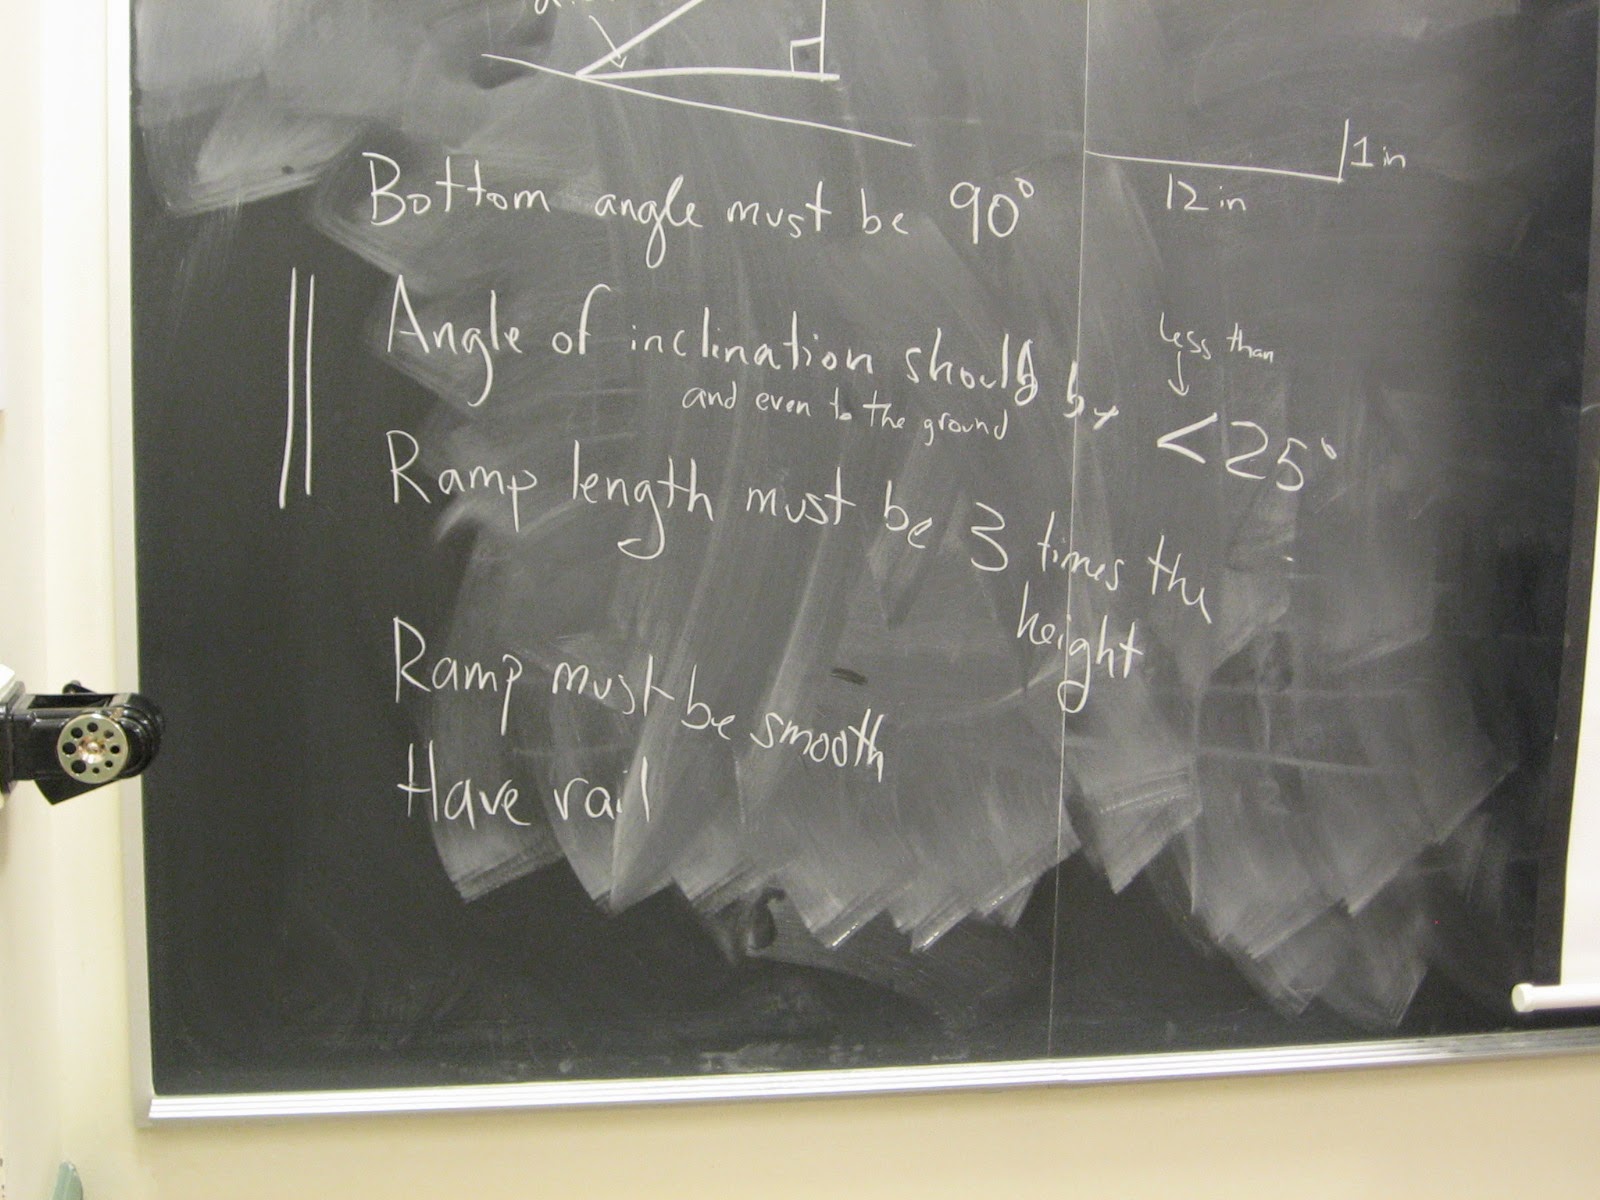 1 in
12 in
Bottom angle must be 90°
less than
Angle of inclination should be < 25°
and even to the ground
Ramp length must be 3 times the
height
Ramp must be smooth
Have rail